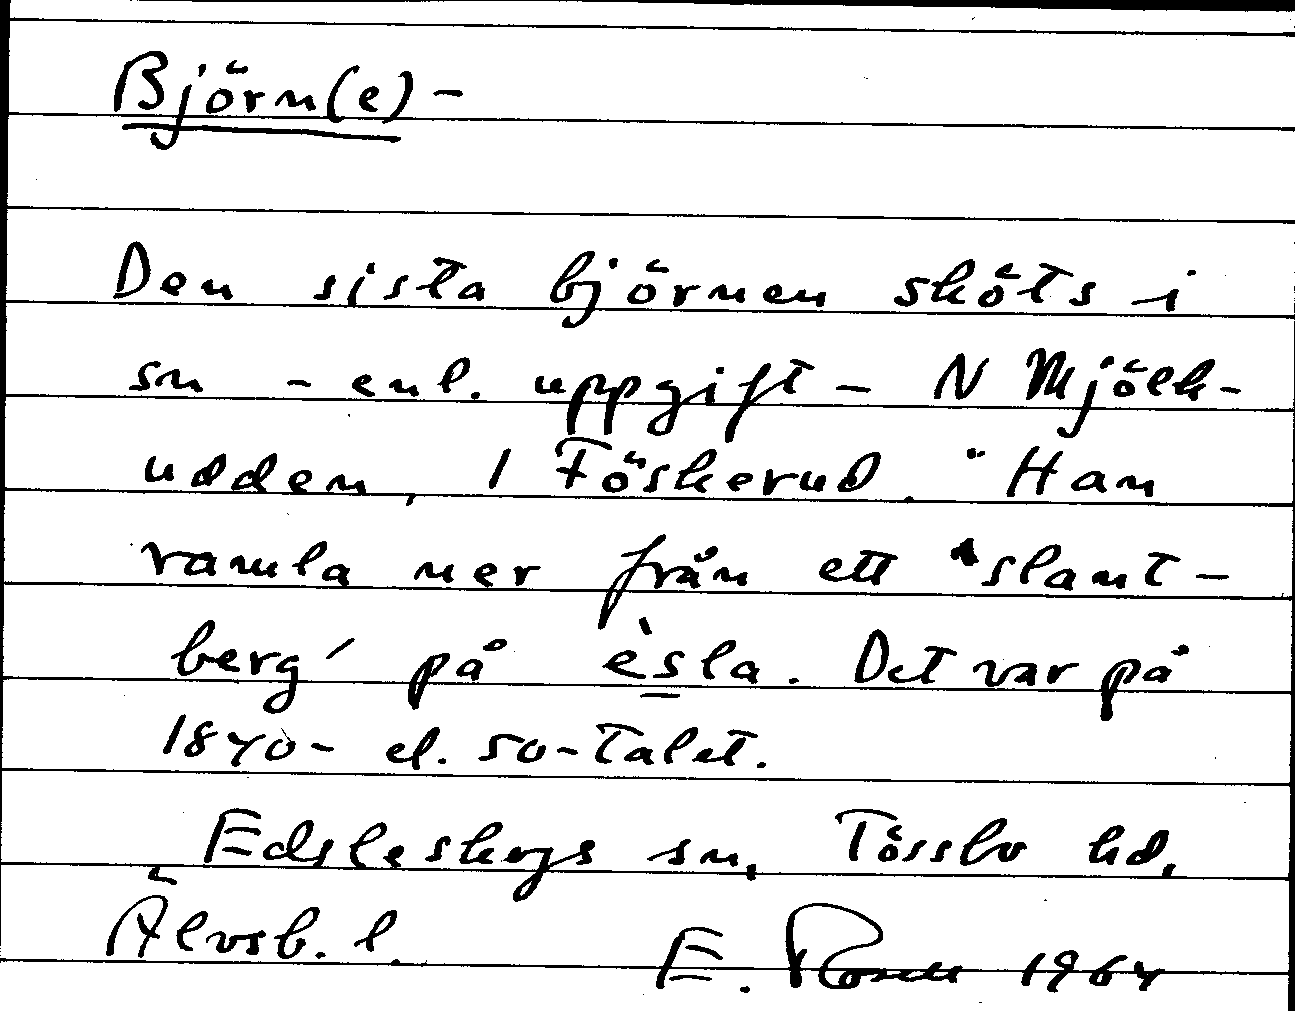 Björn(e) -
Den sista björnen sköts i
sn - enl. uppgift - N Mjölk-
udden, 1 Föskerud. "Han
ramla ner från ett 'slant-
berg' på èsla. Det var på
1840- el. 50-talet.
Edsleskogs sn, Tössbo hd,
Älvsb. l.
E. Rosell 1964